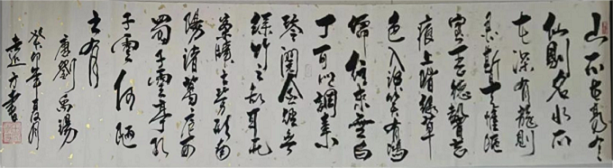 山不在高有
仙則名水不
在深有龍則
靈斯是陋
室惟吾德馨苔
痕上階綠草
色入談笑有鴻
儒往來無白
丁可以調素
琴閱金經無
絲竹之亂耳無
案牘之勞形南
陽諸葛廬西
蜀子雲亭孔
子云何陋
之有
唐劉禹錫
癸卯年夏月
方書